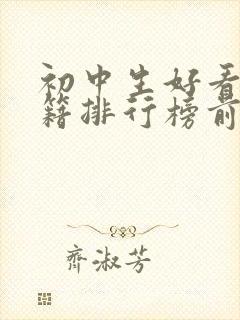 初中生好看
籍排行榜前
齊淑芳